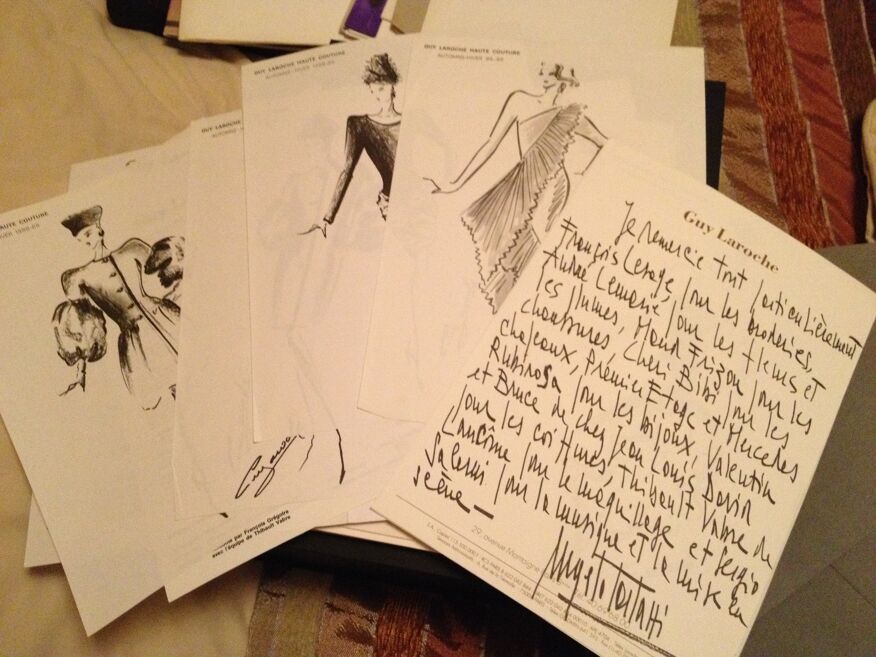 HAUTE COUTURE
1988-89
GUY LAROCHE
AUTOMNE-
GUY LAROCHE HAUTE COUTURE
AUTOMNE-HIVER 1988-89
GUY LAROCHE HAUTE COUTURE
AUTOMNE-HIVER 88-89
par François Grégoire
avec l'équipe de Thibault Vabre
Guy Laroche
Je remercie tout particulièrement
François Lesage, pour les broderies,
André Lemarié pour les fleurs et
les plumes, Maud Frizon pour les
chaussures, Chéri Bibi pour les
chapeaux, Premier Etage et Mercedes
Rubirosa pour les bijoux, Valentin
et Bruce de chez Jean Louis David
pour les coiffures, Thibault Vabre de
Lancôme pour le maquillage et Sergio
Salerni pour la musique et la mise en
scène -
29, avenue Montaigne